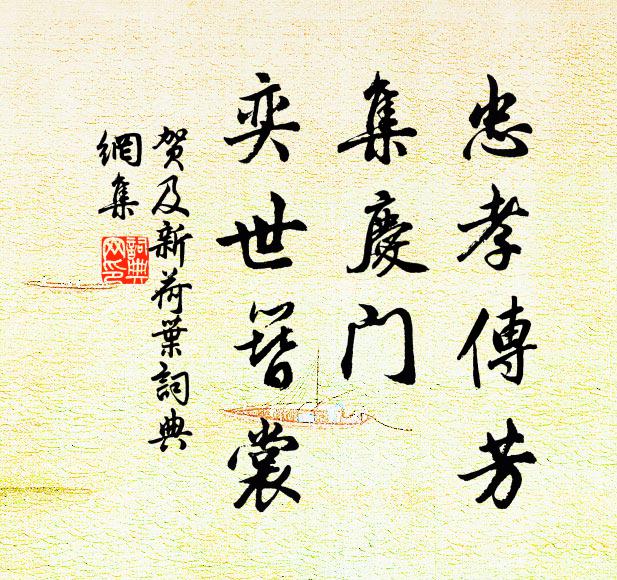 忠孝傳芳
集慶門
奕世簪裳
賀及新荷葉詞典
網集
詞典
网印